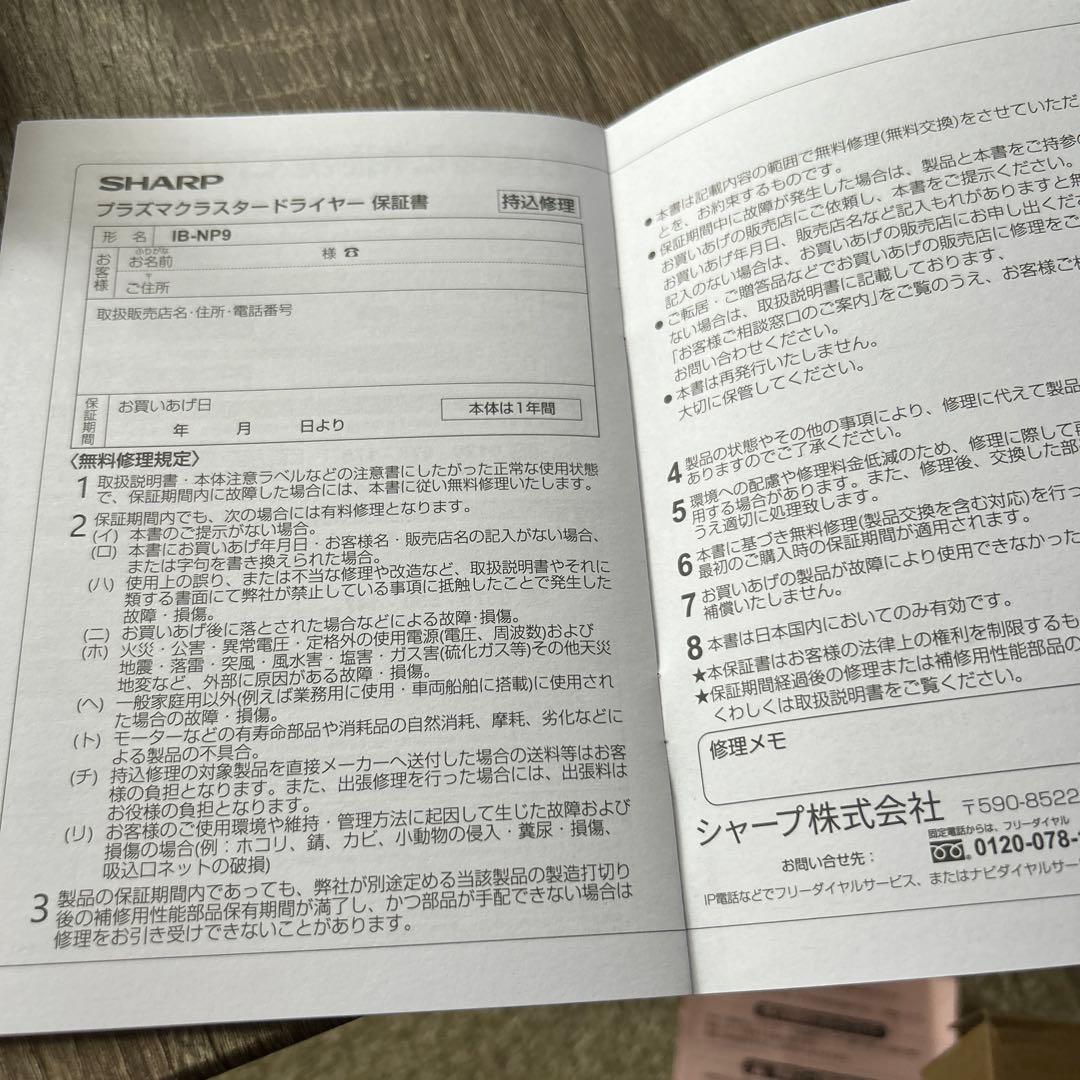 SHARP
プラズマクラスタードライヤー 保証書
持込修理
形 名 IB-NP9
お客様
ふりがな
お名前 様 ☎
〒
ご住所
取扱販売店名・住所・電話番号
保証期間
お買いあげ日
年 月 日より
本体は1年間
〈無料修理規定〉
1 取扱説明書・本体注意ラベルなどの注意書にしたがった正常な使用状態
で、保証期間内に故障した場合には、本書に従い無料修理いたします。
2 保証期間内でも、次の場合には有料修理となります。
(イ) 本書のご提示がない場合。
(ロ) 本書にお買いあげ年月日・お客様名・販売店名の記入がない場合、
または字句を書き換えられた場合。
(ハ) 使用上の誤り、または不当な修理や改造など、取扱説明書やそれに
類する書面にて弊社が禁止している事項に抵触したことで発生した
故障・損傷。
(ニ) お買いあげ後に落とされた場合などによる故障・損傷。
(ホ) 火災・公害・異常電圧・定格外の使用電源(電圧、周波数)および
地震・落雷・突風・風水害・塩害・ガス害(硫化ガス等)その他天災
地変など、外部に原因がある故障・損傷。
(ヘ) 一般家庭用以外(例えば業務用に使用・車両船舶に搭載)に使用され
た場合の故障・損傷。
(ト) モーターなどの有寿命部品や消耗品の自然消耗、摩耗、劣化などに
よる製品の不具合。
(チ) 持込修理の対象製品を直接メーカーへ送付した場合の送料等はお客
様の負担となります。また、出張修理を行った場合には、出張料は
お役様の負担となります。
(リ) お客様のご使用環境や維持・管理方法に起因して生じた故障および
損傷の場合(例：ホコリ、錆、カビ、小動物の侵入・糞尿・損傷、
吸込口ネットの破損)
3 製品の保証期間内であっても、弊社が別途定める当該製品の製造打切り
後の補修用性能部品保有期間が満了し、かつ部品が手配できない場合は
修理をお引き受けできないことがあります。
●本書は記載内容の範囲で無料修理(無料交換)をさせていただ
とを、お約束するものです。
●保証期間中に故障が発生した場合は、製品と本書をご持参の
お買いあげの販売店にご依頼し、本書をご提示ください。
お買いあげ年月日、販売店名など記入もれがありますと無
記入のない場合は、お買いあげの販売店にお申し出くださ
●ご転居・ご贈答品などでお買いあげの販売店に修理をご
ない場合は、取扱説明書に記載しております、
「お客様ご相談窓口のご案内」をご覧のうえ、お客様ご相
お問い合わせください。
●本書は再発行いたしません。
大切に保管してください。
4 製品の状態やその他の事項により、修理に代えて製品
ありますのでご了承ください。
5 環境への配慮や修理料金低減のため、修理に際して再
用する場合があります。また、修理後、交換した部
うえ適切に処理致します。
6 本書に基づき無料修理(製品交換を含む対応)を行っ
最初のご購入時の保証期間が適用されます。
7 お買いあげの製品が故障により使用できなかった
補償いたしません。
8 本書は日本国内においてのみ有効です。
★本保証書はお客様の法律上の権利を制限するも
★保証期間経過後の修理または補修用性能部品の
くわしくは取扱説明書をご覧ください。
修理メモ
シャープ株式会社 〒590-8522
お問い合せ先：
固定電話からは、フリーダイヤル
0120-078-
IP電話などでフリーダイヤルサービス、またはナビダイヤルサー